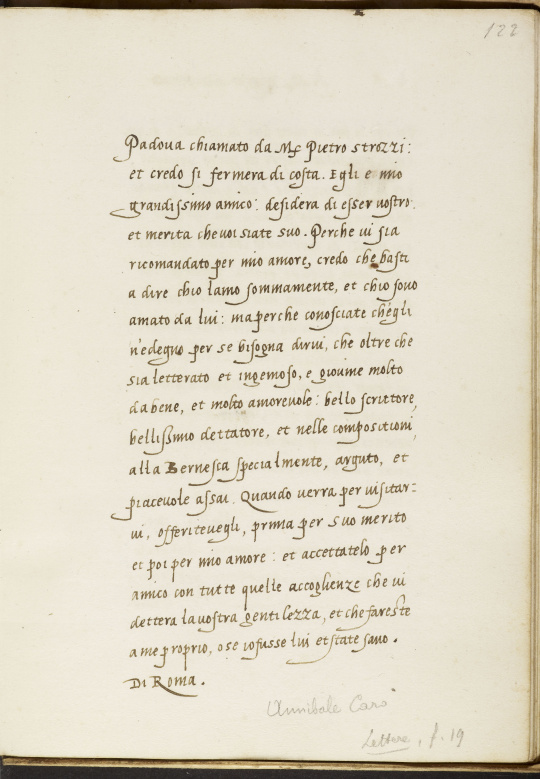 122
Padova chiamato da Mʒ Pietro strozzi:
et credo si fermera di costa. Egli e mio
grandissimo amico: desidera di esser vostro.
et merita che voi siate suo. Perche vi sia
ricomandato per mio amore, credo che basti
a dire chio lamo sommamente, et chio sono
amato da lui: ma perche conosciate ch'egli
n'e degno per se bisogna dirvi, che oltre che
sia letterato et ingenioso, e giovine molto
da bene, et molto amorevole: bello scrittore,
bellissimo dettatore, et nelle compositioni,
alla Bernesca specialmente, arguto, et
piacevole assai. Quando verra per visitar=
vi, offeritevegli, prima per suo merito
et poi per mio amore: et accettatelo per
amico con tutte quelle accoglienze che vi
dettera la vostra gentilezza, et che fareste
a me proprio, o se io fusse lui et state sano.
Di Roma.
Annibale Caro
Lettere, f. 19